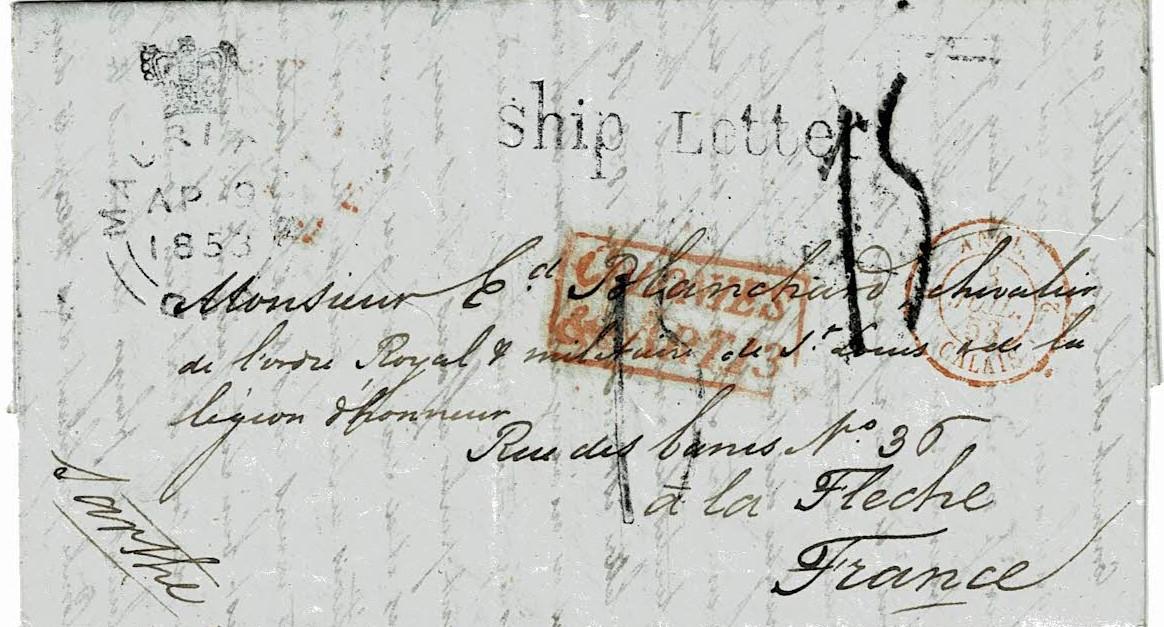 MAURITIUS
AP 9
1853
Ship Letter
15
COLONIES
& ART. 13
ANGL.
JUIL.
53
CALAIS
Monsieur Ed Blanchard chevalier
de l'ordre Royal & militaire de St. Louis de la
légion d'honneur
Rue des bancs No 36
à la Fleche
France
Sarthe